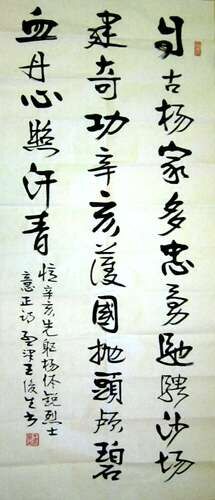 自古杨家多忠勇驰骋沙场
建奇功辛亥護國抛頭颅碧
血丹心照汗青
忆辛亥先躯杨休锐烈士
意正诗孟津王俊生书